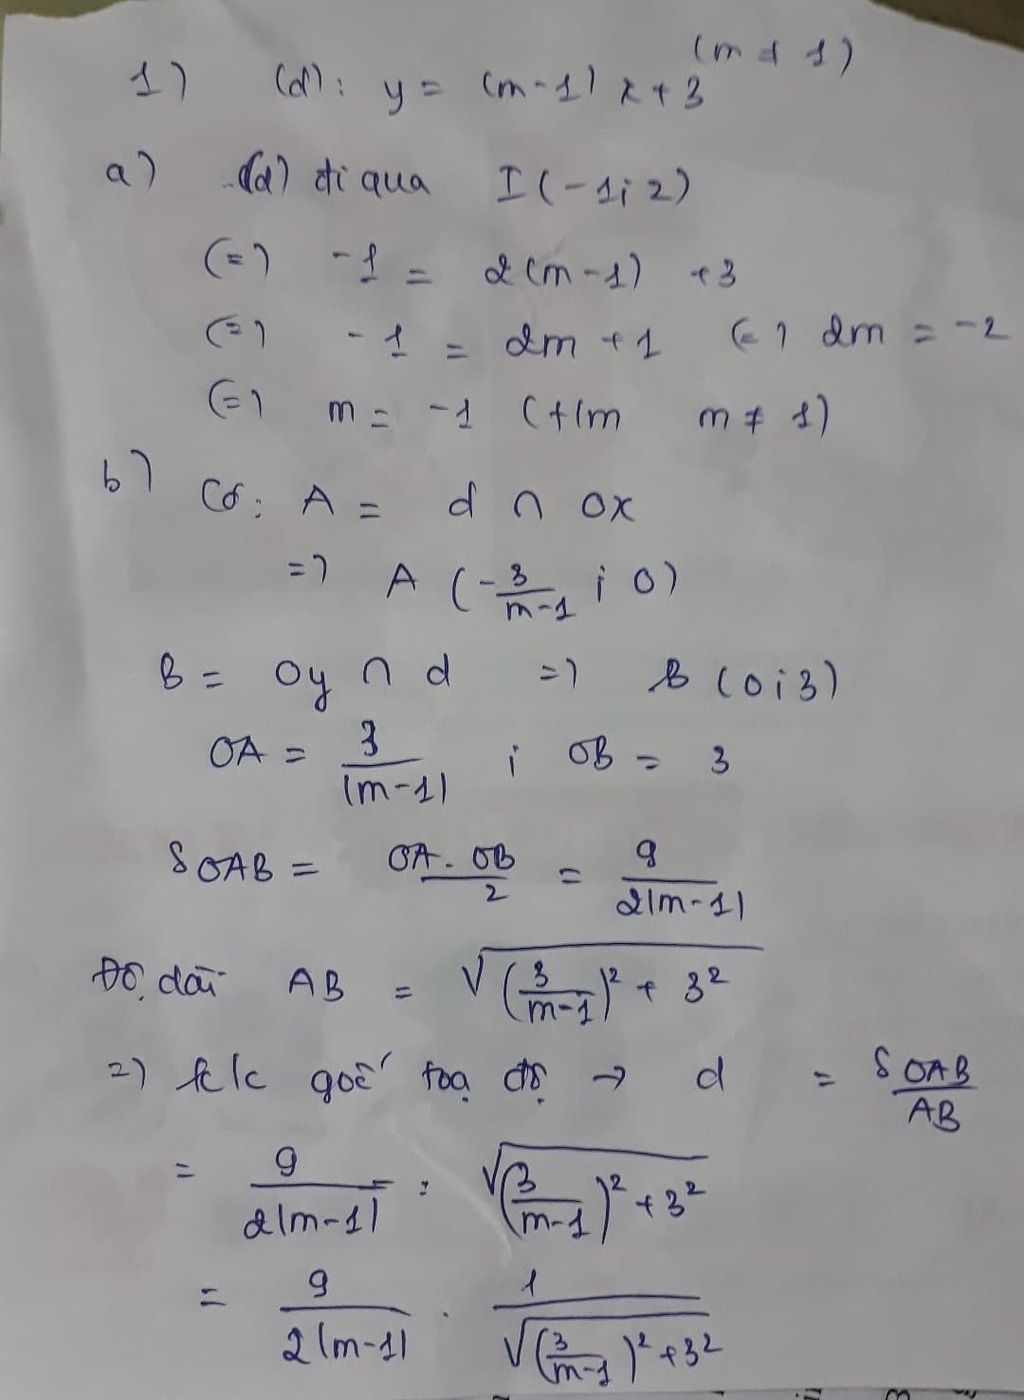 (m ≠ 1)
1) (d): y = (m-1) x + 3
a) (d) đi qua I (-1; 2)
(=) -1 = 2(m-1) +3
(=) -1 = 2m + 1 (=) 2m = -2
(=) m = -1 (t/m m ≠ 1)
b) Có: A = d ∩ Ox
=) A (-3/(m-1) ; 0)
B = Oy ∩ d =) B (0; 3)
OA = 3/|m-1| ; OB = 3
SOAB = OA . OB/2 = 9/(2|m-1|)
Độ dài AB = √((3/(m-1))² + 3²)
=) k/c gốc toạ độ → d = SOAB/AB
= 9/(2|m-1|) : √((3/(m-1))² + 3²)
= 9/(2|m-1|) . 1/√((3/(m-1))² + 3²)